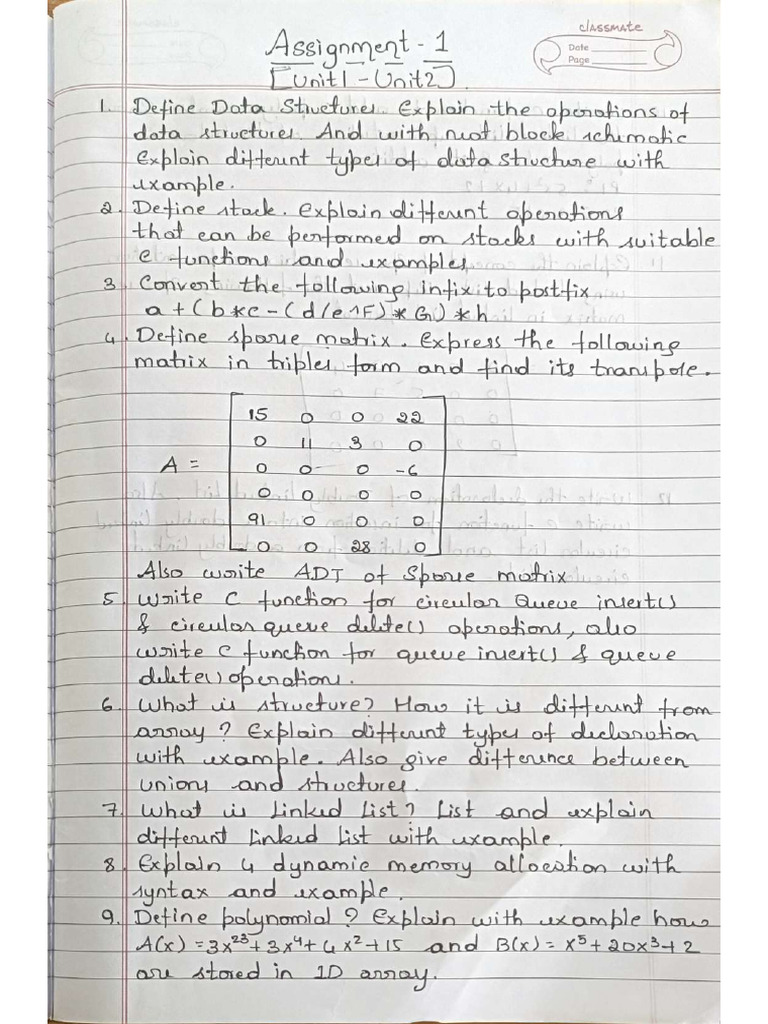 classmate
Date
Page
Assignment - 1
[Unit1 - Unit2].
1. Define Data Structures. Explain the operations of
data structures. And with neat block schematic
Explain different types of data structure with
example.
2. Define stack. Explain different operations
that can be performed on stacks with suitable
C functions and examples
3 Convert the following infix to postfix
a + ( b * c - ( d / e ^ F ) * G ) * h
4. Define sparse matrix. Express the following
matrix in triples form and find its transpose.
15 0 0 22
0 11 3 0
A = 0 0 0 -6
0 0 0 0
91 0 0 0
0 0 28 0
Also write ADT of Sparse matrix
5. Write C function for circular Queue insert()
& circular queue delete() operations, also
write C function for queue insert() & queue
delete() operations.
6. What is structure? How it is different from
array? Explain different types of declaration
with example. Also give difference between
unions and structures.
7. What is Linked List? List and explain
different Linked List with example.
8. Explain 4 dynamic memory allocation with
syntax and example.
9. Define polynomial? Explain with example how
A(x) = 3x²³ + 3x⁴ + 4x² + 15 and B(x) = x⁵ + 20x³ + 2
are stored in 1D array.